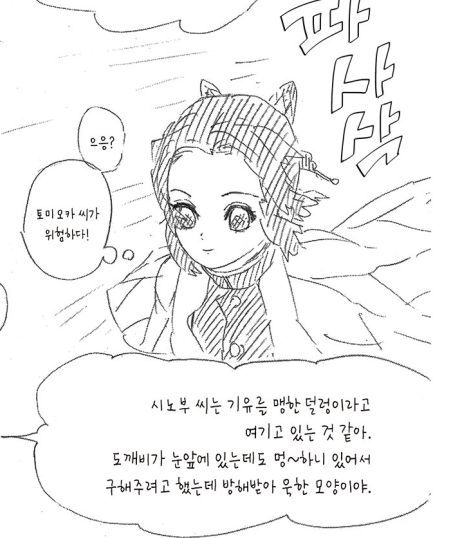 파
사
삭
으응?
토미오카 씨가
위험하다!
시노부 씨는 기유를 맹한 덜렁이라고
여기고 있는 것 같아.
도깨비가 눈앞에 있는데도 멍~하니 있어서
구해주려고 했는데 방해받아 욱한 모양이야.